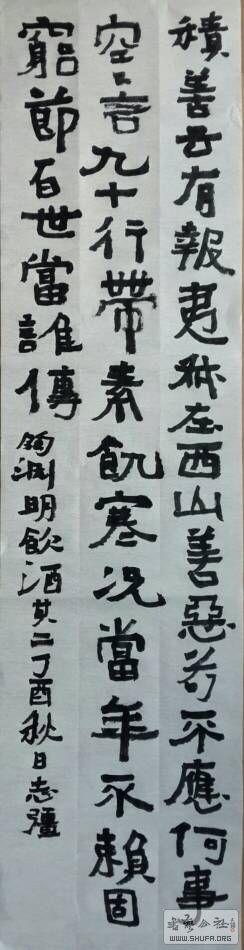 積善云有報夷叔在西山善惡苟不應何事
空立言九十行帶素飢寒況當年不賴固
窮節百世當誰傳 陶淵明飲酒其二丁酉秋日志疆
书艺公社
WWW.SHUFA.ORG